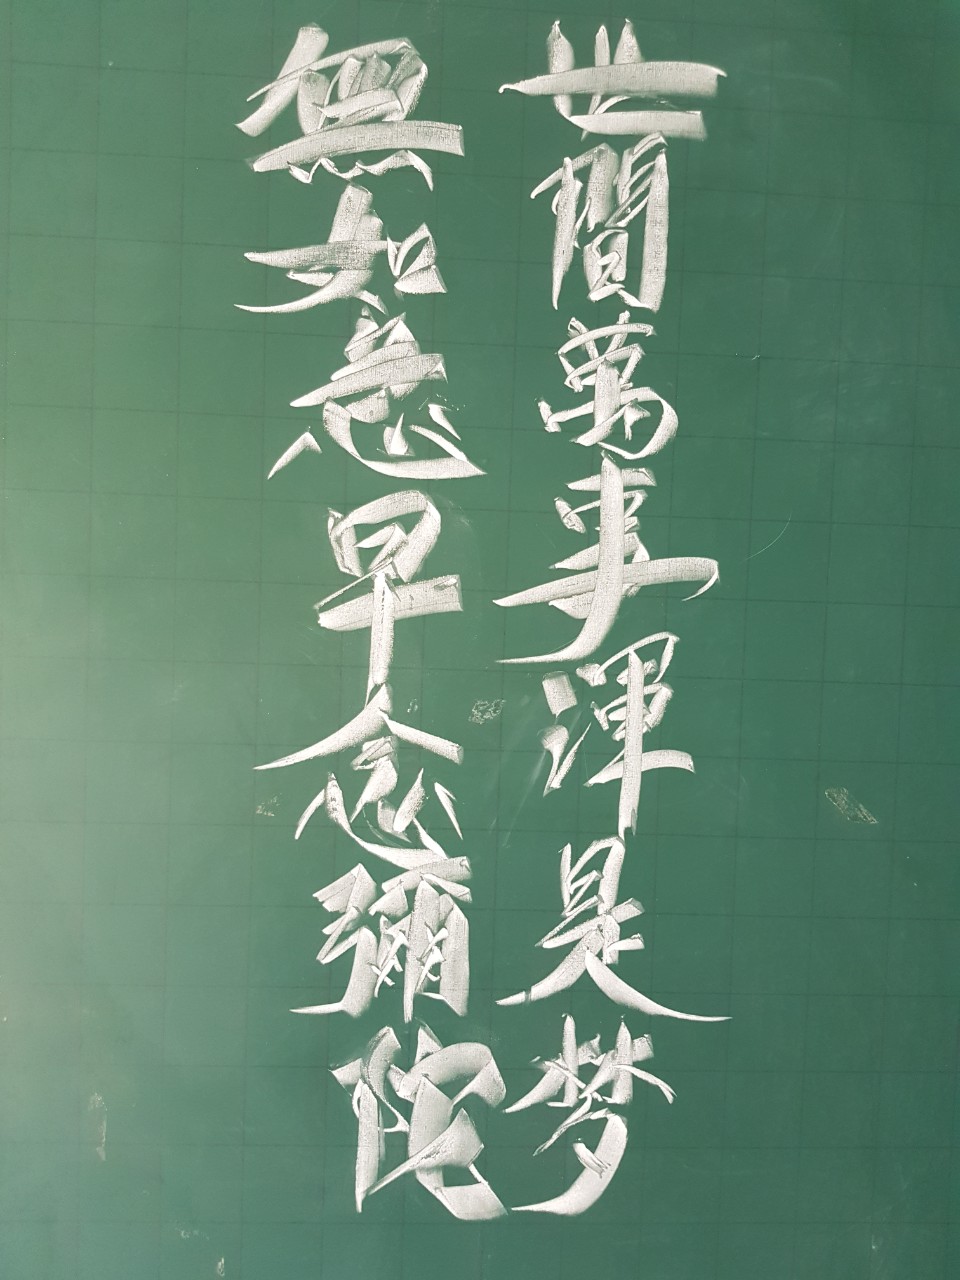 世間萬事渾是梦
無如急早念彌陀